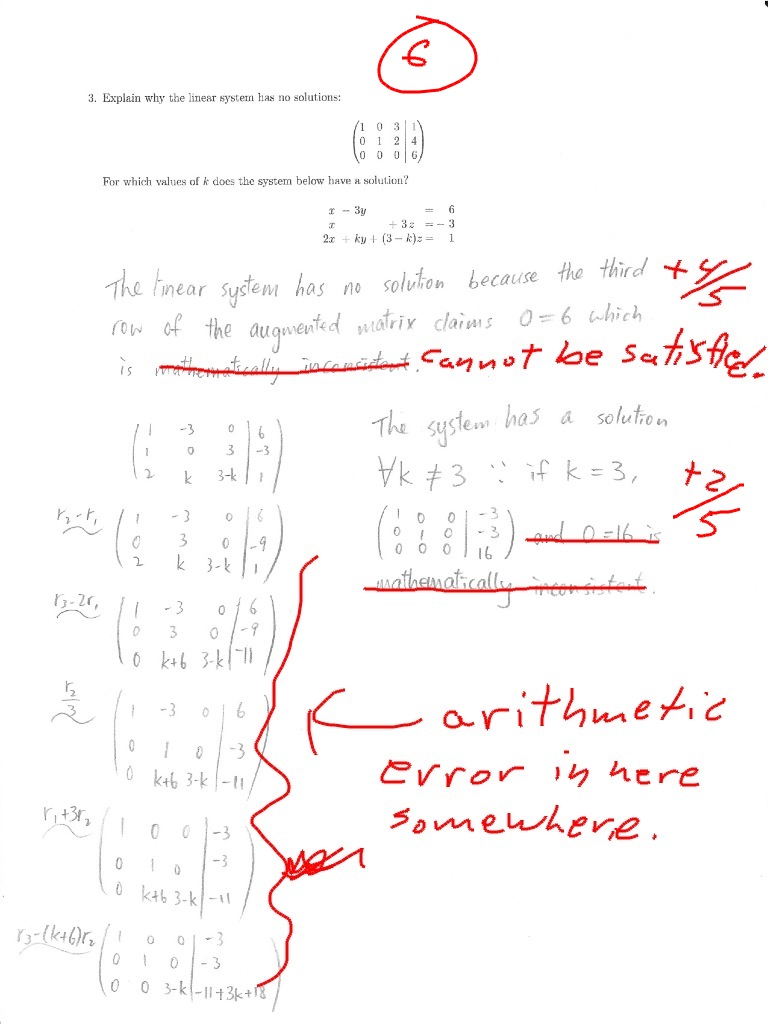 6
3. Explain why the linear system has no solutions:
1 0 3 | 1
0 1 2 | 4
0 0 0 | 6
For which values of k does the system below have a solution?
x − 3y = 6
x + 3z = −3
2x + ky + (3 − k)z = 1
The linear system has no solution because the third +4/5
row of the augmented matrix claims 0=6 which
is mathematically inconsistent. cannot be satisfied.
The system has a solution
∀k ≠ 3 ∵ if k = 3, +2/5
1 0 0 | -3
0 1 0 | -3
0 0 0 | 16
and 0=16 is
mathematically inconsistent.
1 -3 0 | 6
1 0 3 | -3
2 k 3-k | 1
r₂-r₁
1 -3 0 | 6
0 3 0 | -9
2 k 3-k | 1
r₃-2r₁
1 -3 0 | 6
0 3 0 | -9
0 k+6 3-k | -11
r₂/3
1 -3 0 | 6
0 1 0 | -3
0 k+6 3-k | -11
r₁+3r₂
1 0 0 | -3
0 1 0 | -3
0 k+6 3-k | -11
r₃-(k+6)r₂
1 0 0 | -3
0 1 0 | -3
0 0 3-k | -11+3k+18
arithmetic
error in here
somewhere.